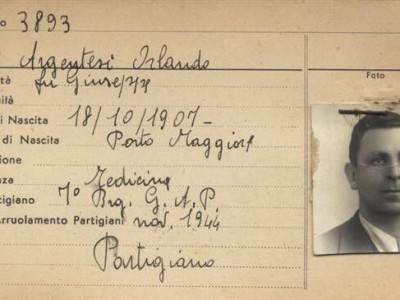 o 3893
Argentesi Orlando
ità fu Giuseppe
uità
i Nascita 18/10/1907-
di Nascita Porto Maggiore
zione
nza Medicina
tigiano 7º Brg. G. A. P.
Arruolamento Partigiani nov. 1944
Partigiano
Foto